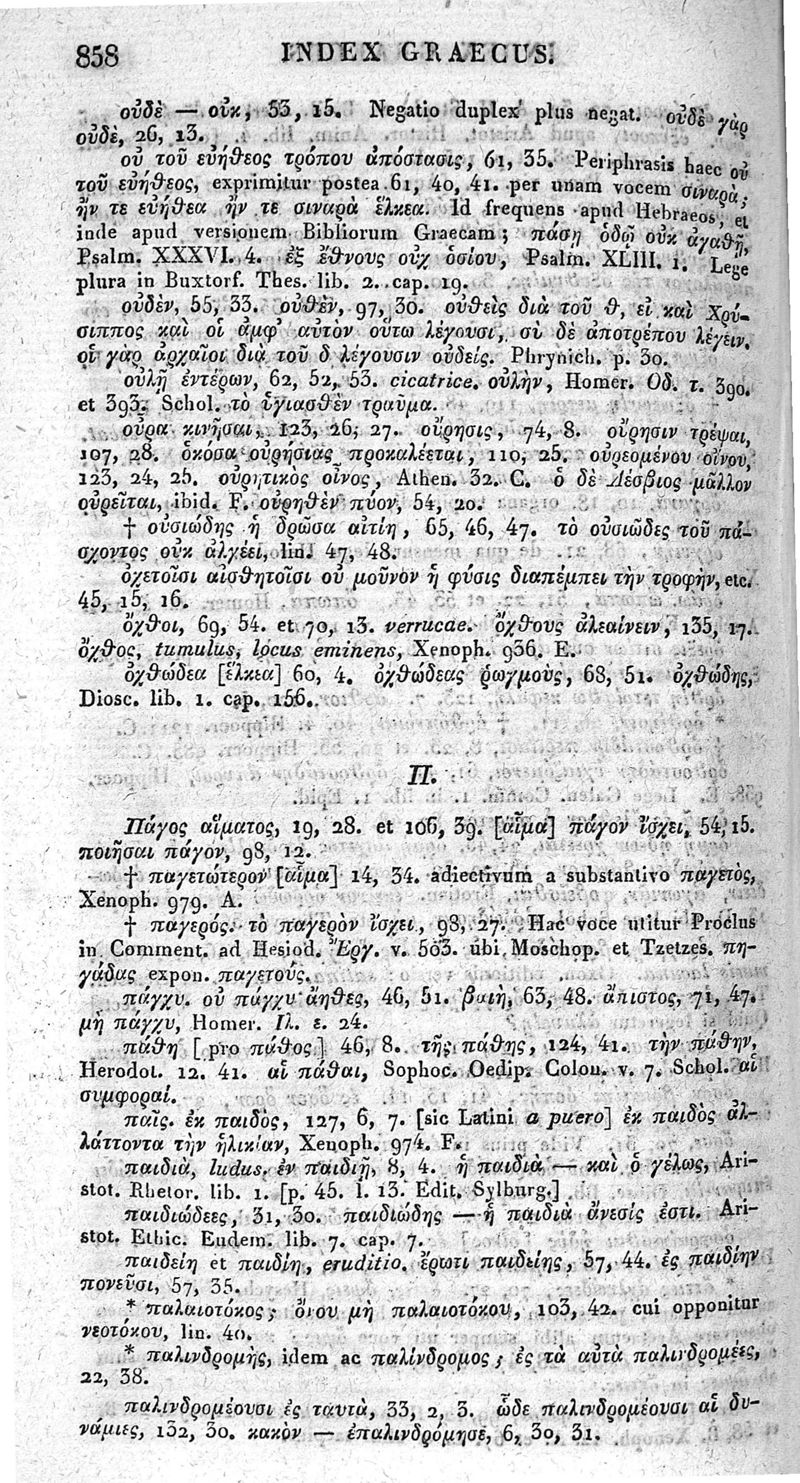 858 INDEX GRAECUS.
οὐδὲ — οὐκ, 53, 15. Negatio duplex plus negat. οὐδὲ γὰρ
οὐδὲ, 26, 13.
οὐ τοῦ εὐήθεος τρόπου ἀπόστασις, 61, 35. Periphrasis haec οὐ
τοῦ εὐήθεος, exprimitur postea 61, 40, 41. per unam vocem σιναρὰ;
ἤν τε εὐήθεα ἤν τε σιναρὰ ἕλκεα. Id frequens apud Hebraeos, et
inde apud versionem Bibliorum Graecam; πάσῃ ὁδῷ οὐκ ἀγαθῇ,
Psalm. XXXVI. 4. ἐξ ἔθνους οὐχ ὁσίου, Psalm. XLIII. 1. Lege
plura in Buxtorf. Thes. lib. 2. cap. 19.
οὐδὲν, 55, 33. οὐθὲν, 97, 30. οὐθεὶς διὰ τοῦ θ, εἰ καὶ Χρύ-
σιππος καὶ οἱ ἀμφ' αὐτὸν οὕτω λέγουσι, σὺ δὲ ἀποτρέπου λέγειν,
οἱ γὰρ ἀρχαῖοι διὰ τοῦ δ λέγουσιν οὐδείς. Phrynich. p. 30.
οὐλῇ ἐντέρων, 62, 52, 53. cicatrice. οὐλὴν, Homer. Οδ. τ. 390.
et 393. Schol. τὸ ὑγιασθὲν τραῦμα.
οὖρα κινῆσαι, 123, 26, 27. οὔρησις, 74, 8. οὔρησιν τρέψαι,
107, 28. ὁκόσα οὐρήσιας προκαλέεται, 110, 25. οὐρεομένου οἴνου,
123, 24, 25. οὐρητικὸς οἶνος, Athen. 32. C. ὁ δὲ Λέσβιος μᾶλλον
οὐρεῖται, ibid. F. οὐρηθὲν πύον, 54, 20.
† οὐσιώδης ἡ δρῶσα αἰτίη, 65, 46, 47. τὸ οὐσιῶδες τοῦ πά-
σχοντος οὐκ ἀλγέει, lin. 47, 48.
ὀχετοῖσι αἰσθητοῖσι οὐ μοῦνὸν ἡ φύσις διαπέμπει τὴν τροφὴν, etc.
45, 15, 16.
ὄχθοι, 69, 54. et 70, 13. verrucae. ὄχθους ἀλεαίνειν, 135, 17.
ὄχθος, tumulus, locus eminens, Xenoph. 936. E.
ὀχθώδεα [ἕλκεα] 60, 4. ὀχθώδεας ῥωγμοὺς, 68, 51. ὀχθώδης,
Diosc. lib. 1. cap. 156.
Π.
Πάγος αἵματος, 19, 28. et 106, 39. [αἷμα] πάγον ἴσχει, 54, 15.
ποιῆσαι πάγον, 98, 12.
† παγετώτερον [αἷμα] 14, 34. adiectivum a substantivo παγετὸς,
Xenoph. 979. A.
† παγερός. τὸ παγερὸν ἴσχει, 98, 27. Hac voce utitur Proclus
in Comment. ad Hesiod. Ἔργ. v. 503. ubi Moschop. et Tzetzes. πη-
γάδας expon. παγετούς.
πάγχυ. οὐ πάγχυ ἄηθες, 46, 51. βαιὴ, 63, 48. ἄπιστος, 71, 47.
μὴ πάγχυ, Homer. Ιλ. ε. 24.
πάθη [pro πάθος] 46, 8. τῆς πάθης, 124, 41. τὴν πάθην,
Herodot. 12. 41. αἱ πάθαι, Sophoc. Oedip. Colon. v. 7. Schol. αἱ
συμφοραί.
παῖς. ἐκ παιδὸς, 127, 6, 7. [sic Latini a puero] ἐκ παιδὸς ἀλ-
λάττοντα τὴν ἡλικίαν, Xenoph. 974. F.
παιδιὰ, ludus. ἐν παιδιῇ, 8, 4. ἡ παιδιὰ — καὶ ὁ γέλως, Ari-
stot. Rhetor. lib. 1. [p. 45. l. 13. Edit. Sylburg.]
παιδιώδεες, 31, 30. παιδιώδης — ἡ παιδιὰ ἄνεσίς ἐστι. Ari-
stot. Ethic. Eudem. lib. 7. cap. 7.
παιδείη et παιδίη, eruditio. ἔρωτι παιδείης, 57, 44. ἐς παιδίην
πονεῦσι, 57, 35.
* παλαιοτόκος; ὄνου μὴ παλαιοτόκου, 103, 42. cui opponitur
νεοτόκου, lin. 40.
* παλινδρομὴς, idem ac παλίνδρομος; ἐς τὰ αὐτὰ παλινδρομέες,
22, 38.
παλινδρομέουσι ἐς ταυτὰ, 33, 2, 3. ὧδε παλινδρομέουσι αἱ δυ-
νάμιες, 132, 30. κακὸν — ἐπαλινδρόμησε, 6, 30, 31.